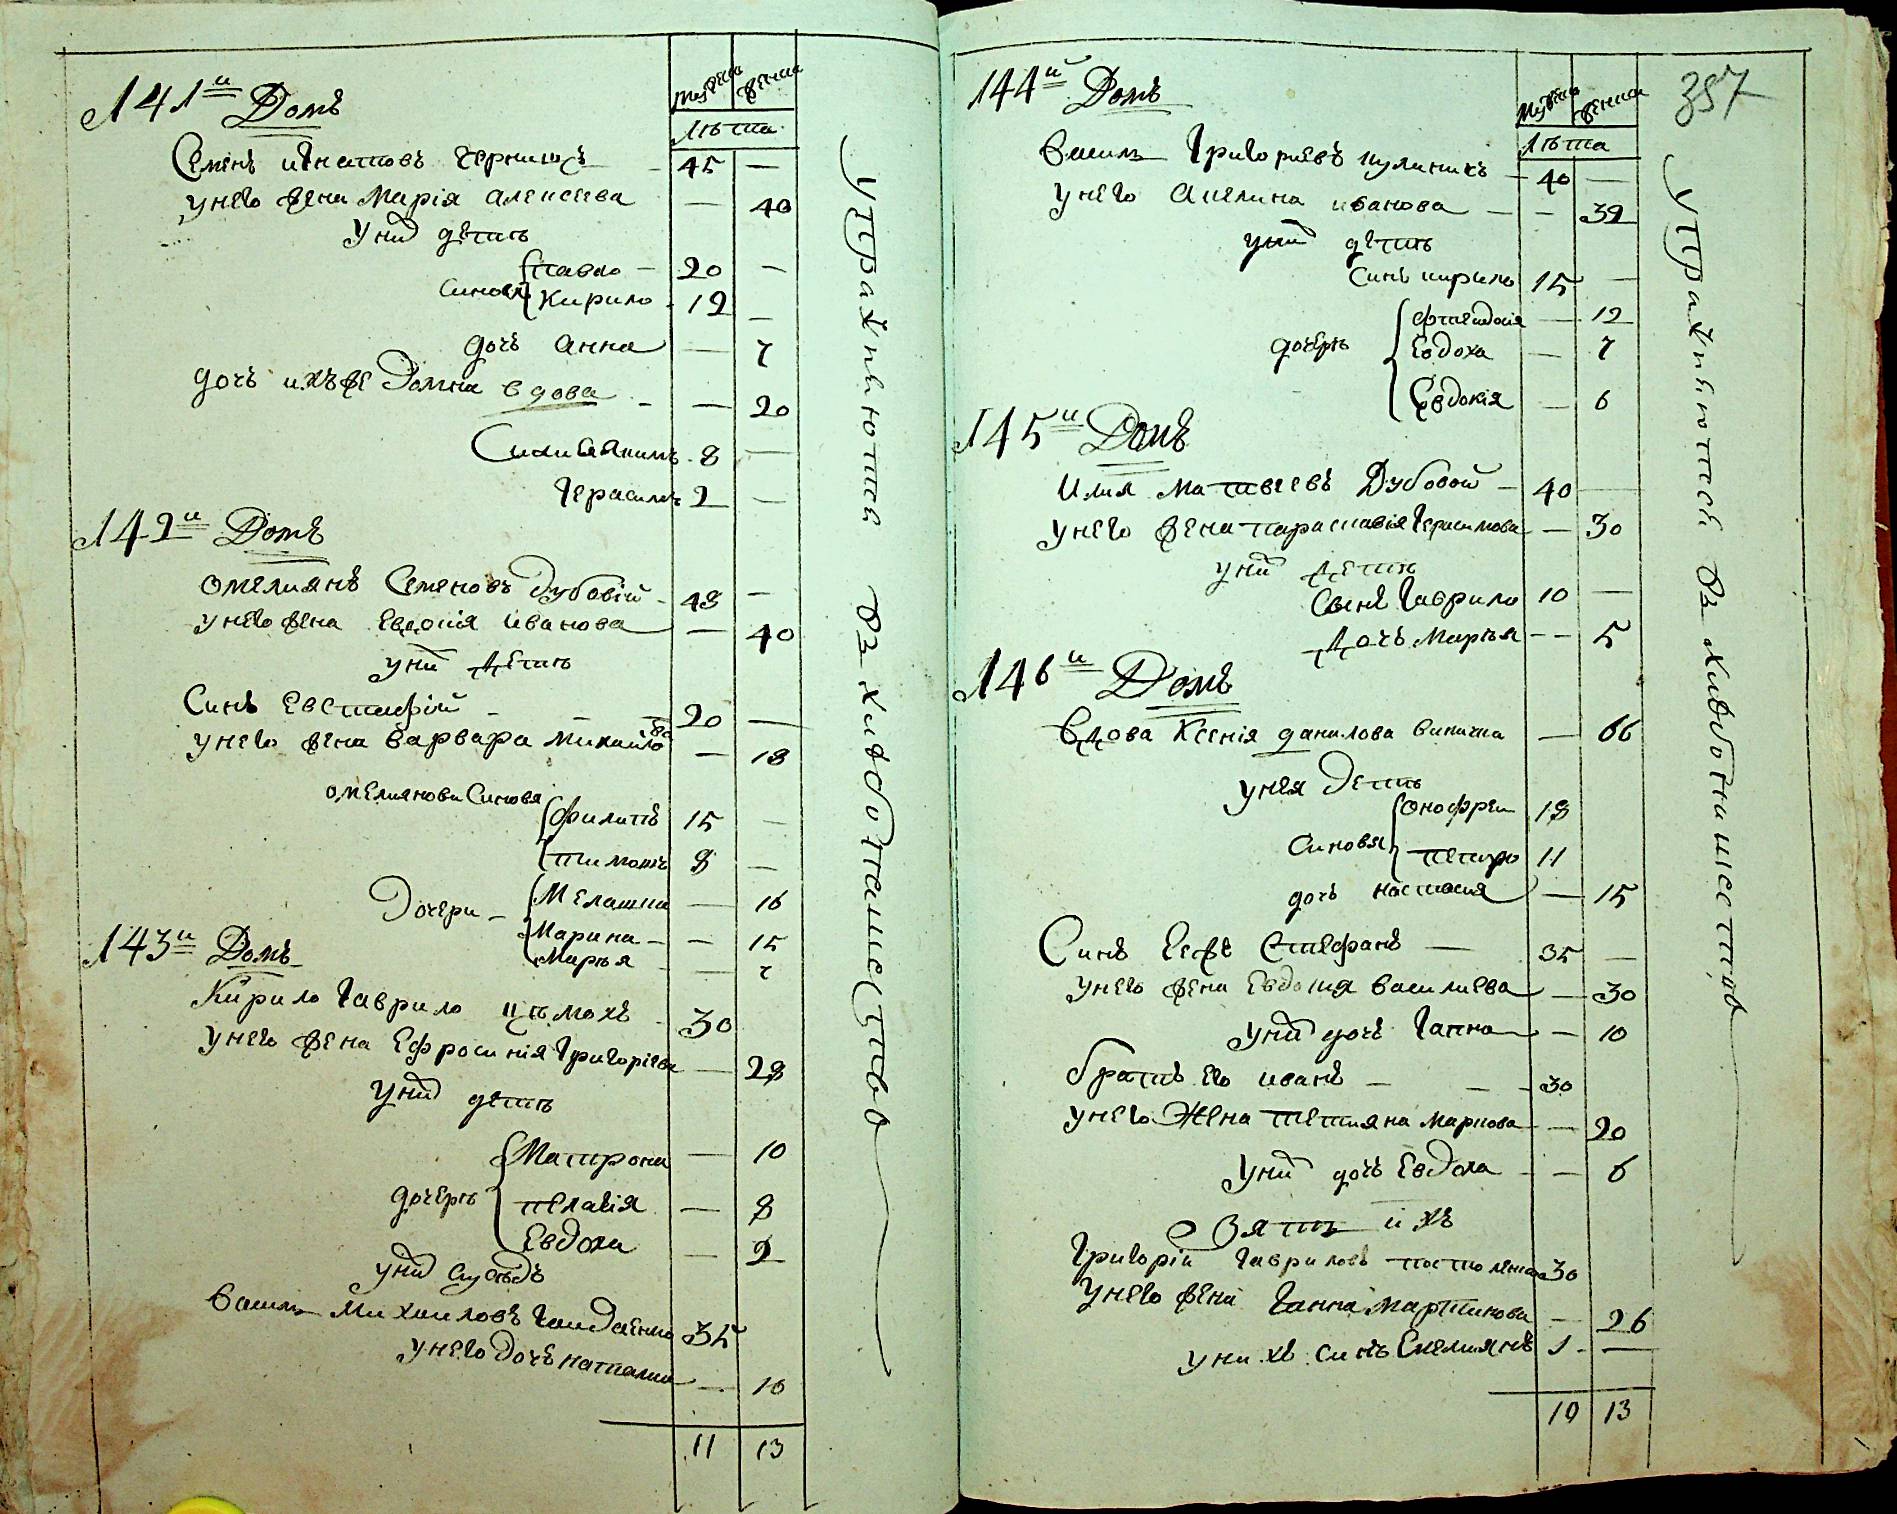 141й Домъ
мужеска женска
Лѣта
Семенъ игнатовъ Черниш — 45 —
У него жена Мария алексеева — 40
У них дѣти
Синовя
павло — 20 —
Кирило 12 —
дочъ анна — 7
дочъ ихъ же Домна вдова — — 20
Син 8 —
Герасимъ 2 —
142й Домъ
омелиянъ Семеновъ дубовій 48 —
У него жена Евдокія Иванова — 40
У них дети
Синъ Евстафій — — 20 —
У него жена Варвара Михайлова — 18
омелиянови Синовя
Филипъ 15 —
тимошъ 8 —
Дочери —
Мелашка — 16
Марина — — 15
Марья — 7
143й Домъ
Кирило Гаврило 30
У него жена Ефросинія Григоріева — 28
У них дѣти
дочерѣ
Матрона — 10
пелагія — 8
Евдоха — 2
У них сусѣдъ
Василь Михаиловъ Гаидаенко 35
У него дочъ наталия — 10
11 13
Упражняются
въ хлѣбопашество
144й Домъ
387
мужеска женска
Лѣта
Василь Григориевъ кулиникъ — 40 —
У него Акелина иванова — — 39
у них дѣти
Синъ кирило 15 —
дочерѣ
Фтеодосія — 12
Евдоха — 7
Евдокія — 6
145й Домъ
Илия Матвѣевъ Дубовой — 40 —
У него жена параскавія Герасимова — 30
у них дѣти
Синъ Гаврило 10 —
дочъ Марья — — 5
146й Домъ
Вдова Ксенія данилова — 66
У нея Дети
Синовя
Онофреи 18
петро 11
дочъ настасия — 15
Синъ Еѣ Стефанъ — 35 —
У него жена Евдокия василиева — 30
У них дочъ Гапка — 10
братъ его иванъ — — — 30
У него Жена тетияна Маркова — 20
У них дочъ Евдоха — — 6
Зять ихъ
Григорій Гавриловъ 30
У него жена Ганна Мартинова — 26
у нихъ синъ Емелиянъ 1 —
10 13
Упражняются въ хлѣбопашество